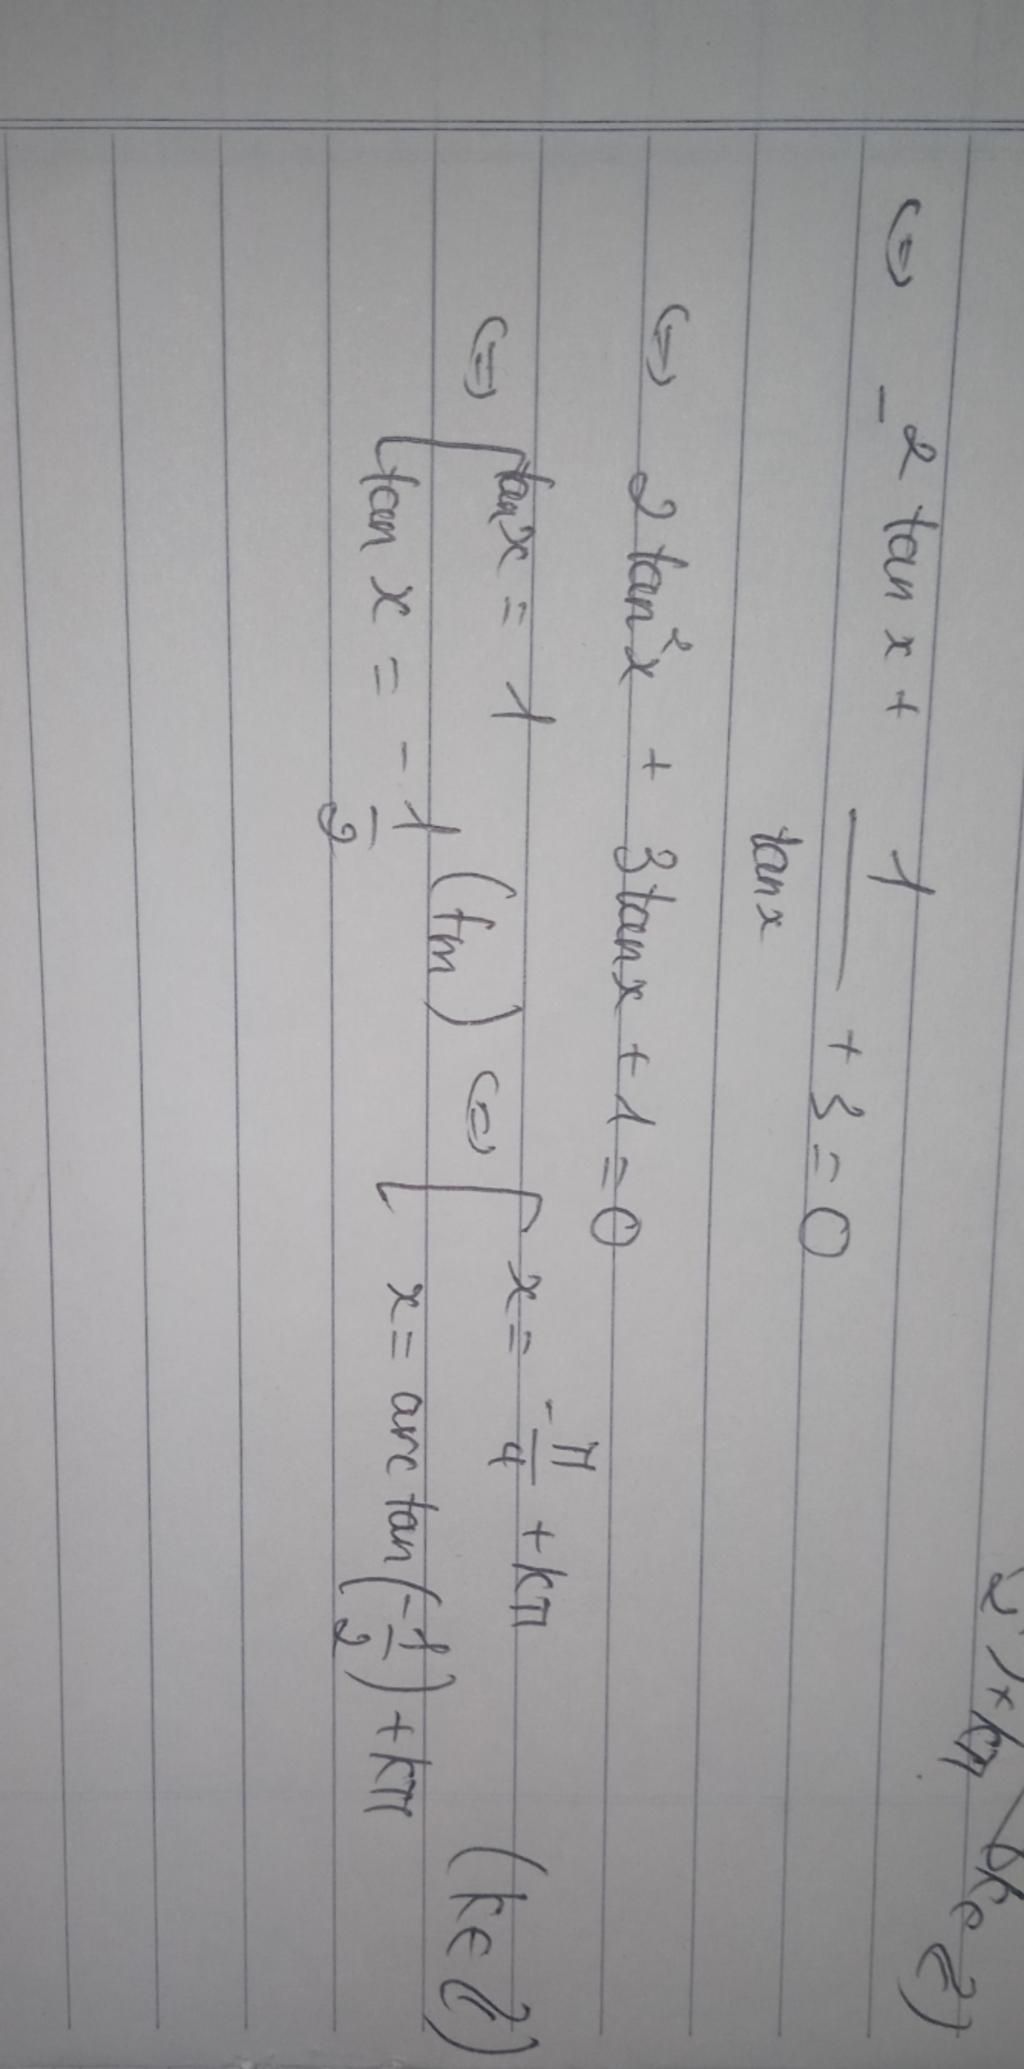 2) + kπ (k ∈ Z)
<=> -2 tan x + 1/tan x + 3 = 0
<=> 2 tan²x + 3 tan x + 1 = 0
<=> [ tan x = 1
tan x = -1/2 (tm) <=> [ x = -π/4 + kπ
x = arc tan(-1/2) + kπ (k ∈ Z)